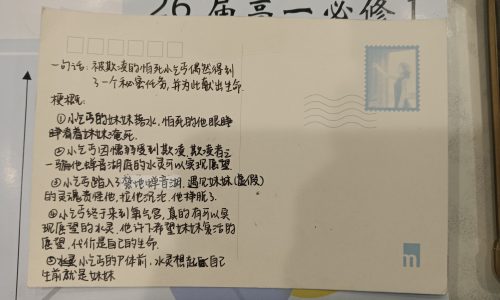 26届高一必修1
一句话：被欺凌的怕死小乞丐偶然得到
了一个秘密任务，并为此献出生命
梗概：
①小乞丐的妹妹落水，怕死的他眼睁
睁看着妹妹淹死.
②小乞丐因懦弱受到欺凌，欺凌者之
一骗他蝉音湖底的水灵可以实现愿望
③小乞丐踏入了禁地蝉音湖，遇见妹妹(虚假)
的灵魂责怪他，拉他沉沦，他挣脱了.
④小乞丐终于来到第六宫，真的有可以实
现愿望的水灵，他许下希望妹妹复活的
愿望，代价是自己的生命.
水灵小乞丐的尸体前，水灵想起自己
生前就是妹妹
m